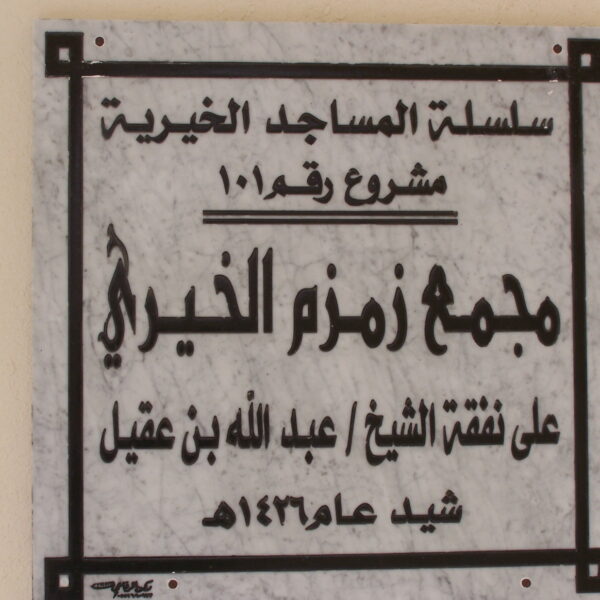 سلسلة المساجد الخيرية
مشروع رقم ١٠١
مجمع زمزم الخيري
على نفقة الشيخ / عبد الله بن عقيل
شيد عام ١٤٢٦هـ